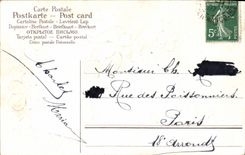 Carte Postale
Postkarte — Post card
Cartolina Postale - Levelező Lap
Dopisnice - Brefkort - Briefkaart - Brevkort
ОТКРЫТОЕ ПИСЬМО.
Tarjeta postal - Cartão postal
5c
Monsieur Ch.
Rue des Poissonniers
Paris
18e Arrondt